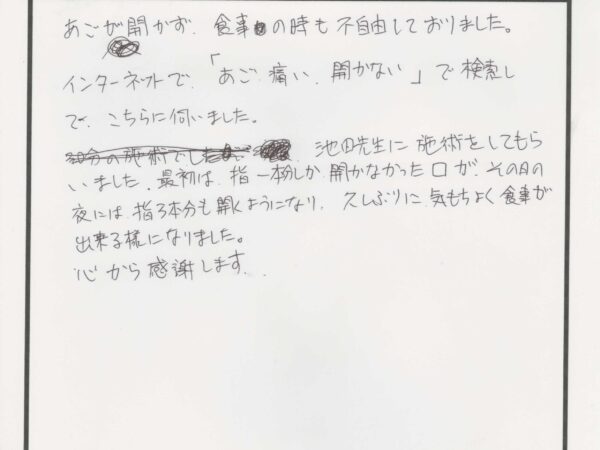 あごが開かず、食事の時も不自由しておりました。
インターネットで、「あご 痛い、開かない」で検索し
で、こちらに伺いました。
30分の施術でした 池田先生に施術をしてもら
いました。最初は、指一本しか開かなかった口が、その日の
夜には、指3本分も開くようになり、久しぶりに気もちよく食事が
出来る様になりました。
心から感謝します。